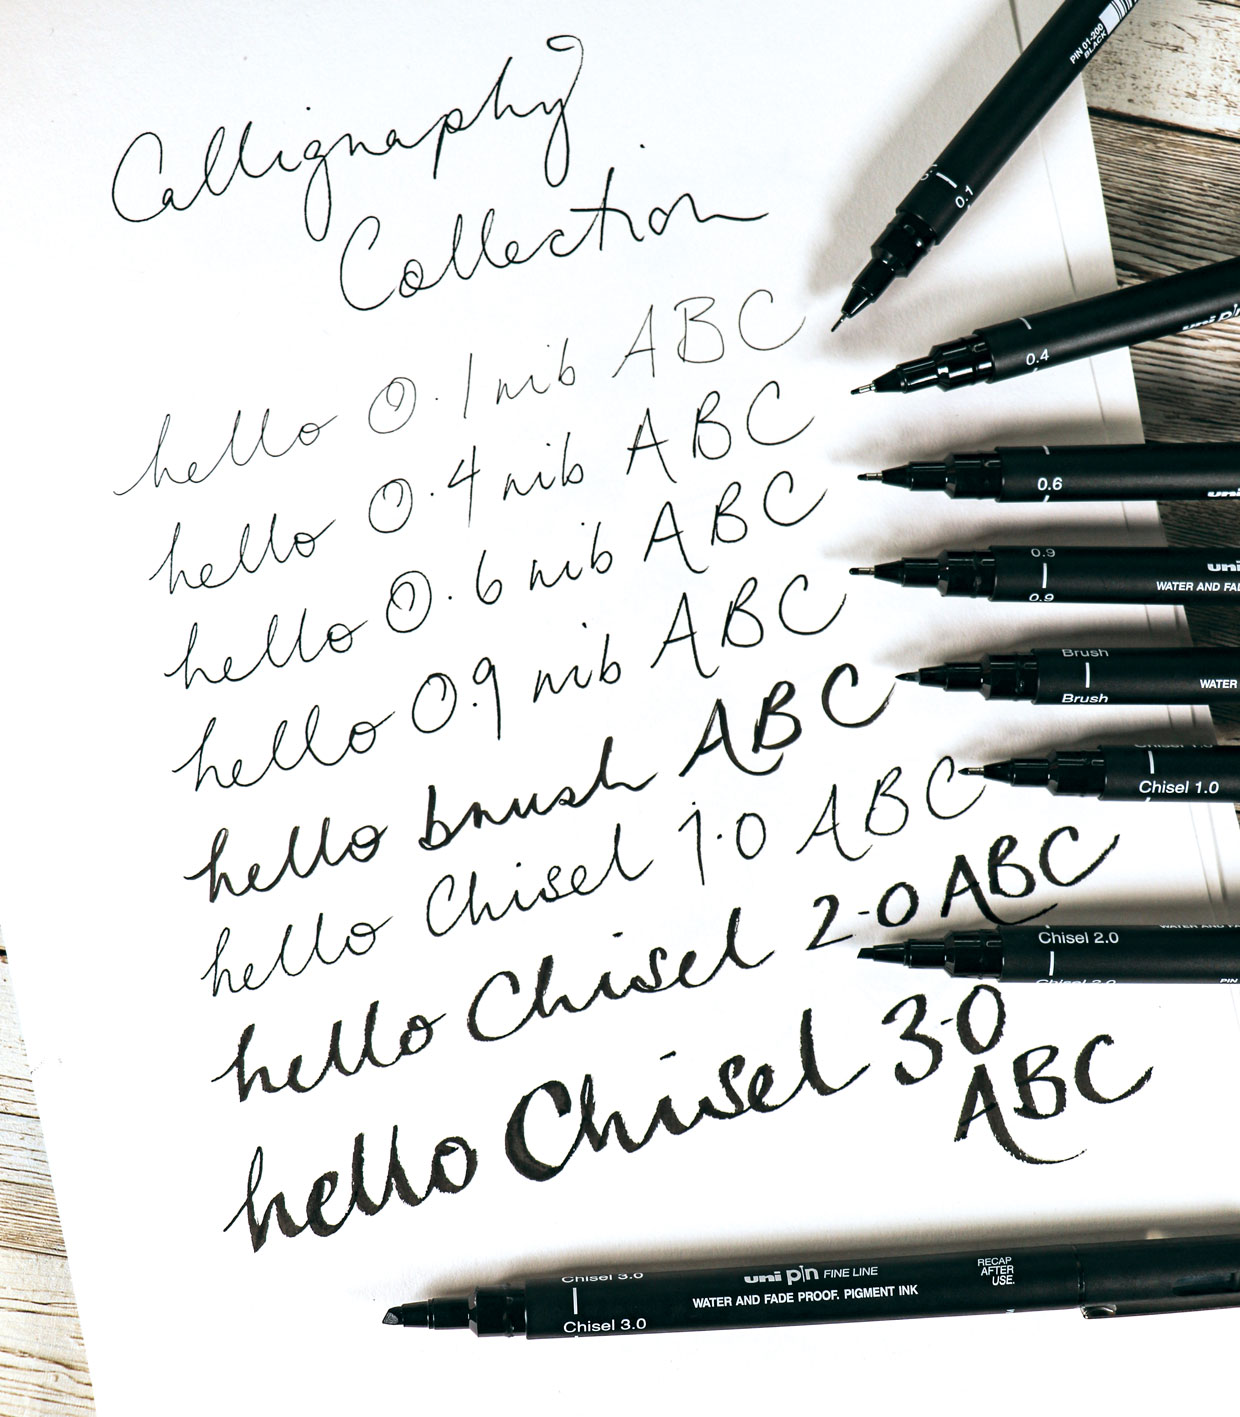 Calligraphy
Collection
PIN 01-200
BLACK
0.1
hello 0.1 nib ABC
uni pin
0.4
hello 0.4 nib ABC
0.6
uni
hello 0.6 nib ABC
0.9
uni
WATER AND FA
0.9
hello 0.9 nib ABC
Brush
WATER
Brush
hello brush ABC
Chisel 1.0
Chisel 1.0
hello Chisel 1.0 ABC
WATER AND FA
Chisel 2.0
Chisel 2.0
PIN
hello Chisel 2.0 ABC
hello Chisel 3.0
ABC
Chisel 3.0
uni pin FINE LINE
WATER AND FADE PROOF. PIGMENT INK
RECAP
AFTER
USE.
Chisel 3.0